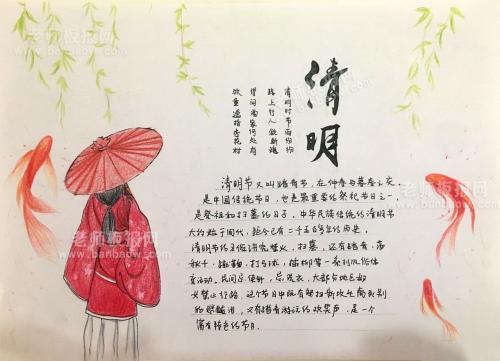 老师板报网
老师板报网
清明
清明时节雨纷纷
路上行人欲断魂
借问酒家何处有
牧童遥指杏花村
清明节又叫踏青节，在仲春与暮春之交
是中国传统节日，也是最重要的祭祀节日之一
是祭祖和扫墓的日子，中华民族传统的清明节
大约始于周代，距今已有二千五百多年的历史。
清明节的习俗讲究禁火，扫墓，还有踏青，荡
秋千，蹴鞠，打马球，插柳等一系列风俗体
育活动。民间忌使针，忌洗衣，大部分地区妇
女禁止行路，这个节日中既有祭扫新坟生离死别
的悲酸泪，又有踏青游玩的欢笑声，是一个
富有特色的节日。
老师板报网
老师板报网